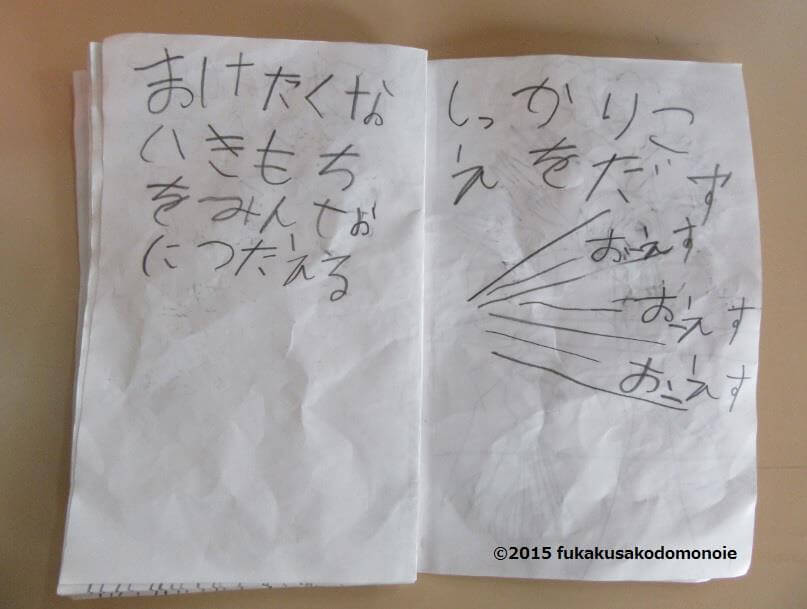 まけたくな
いきもち
をみんな
につたえる
しっかりこ
えをだす
おーえす
おーえす
おーえす
©2015 fukakusakodomonoie